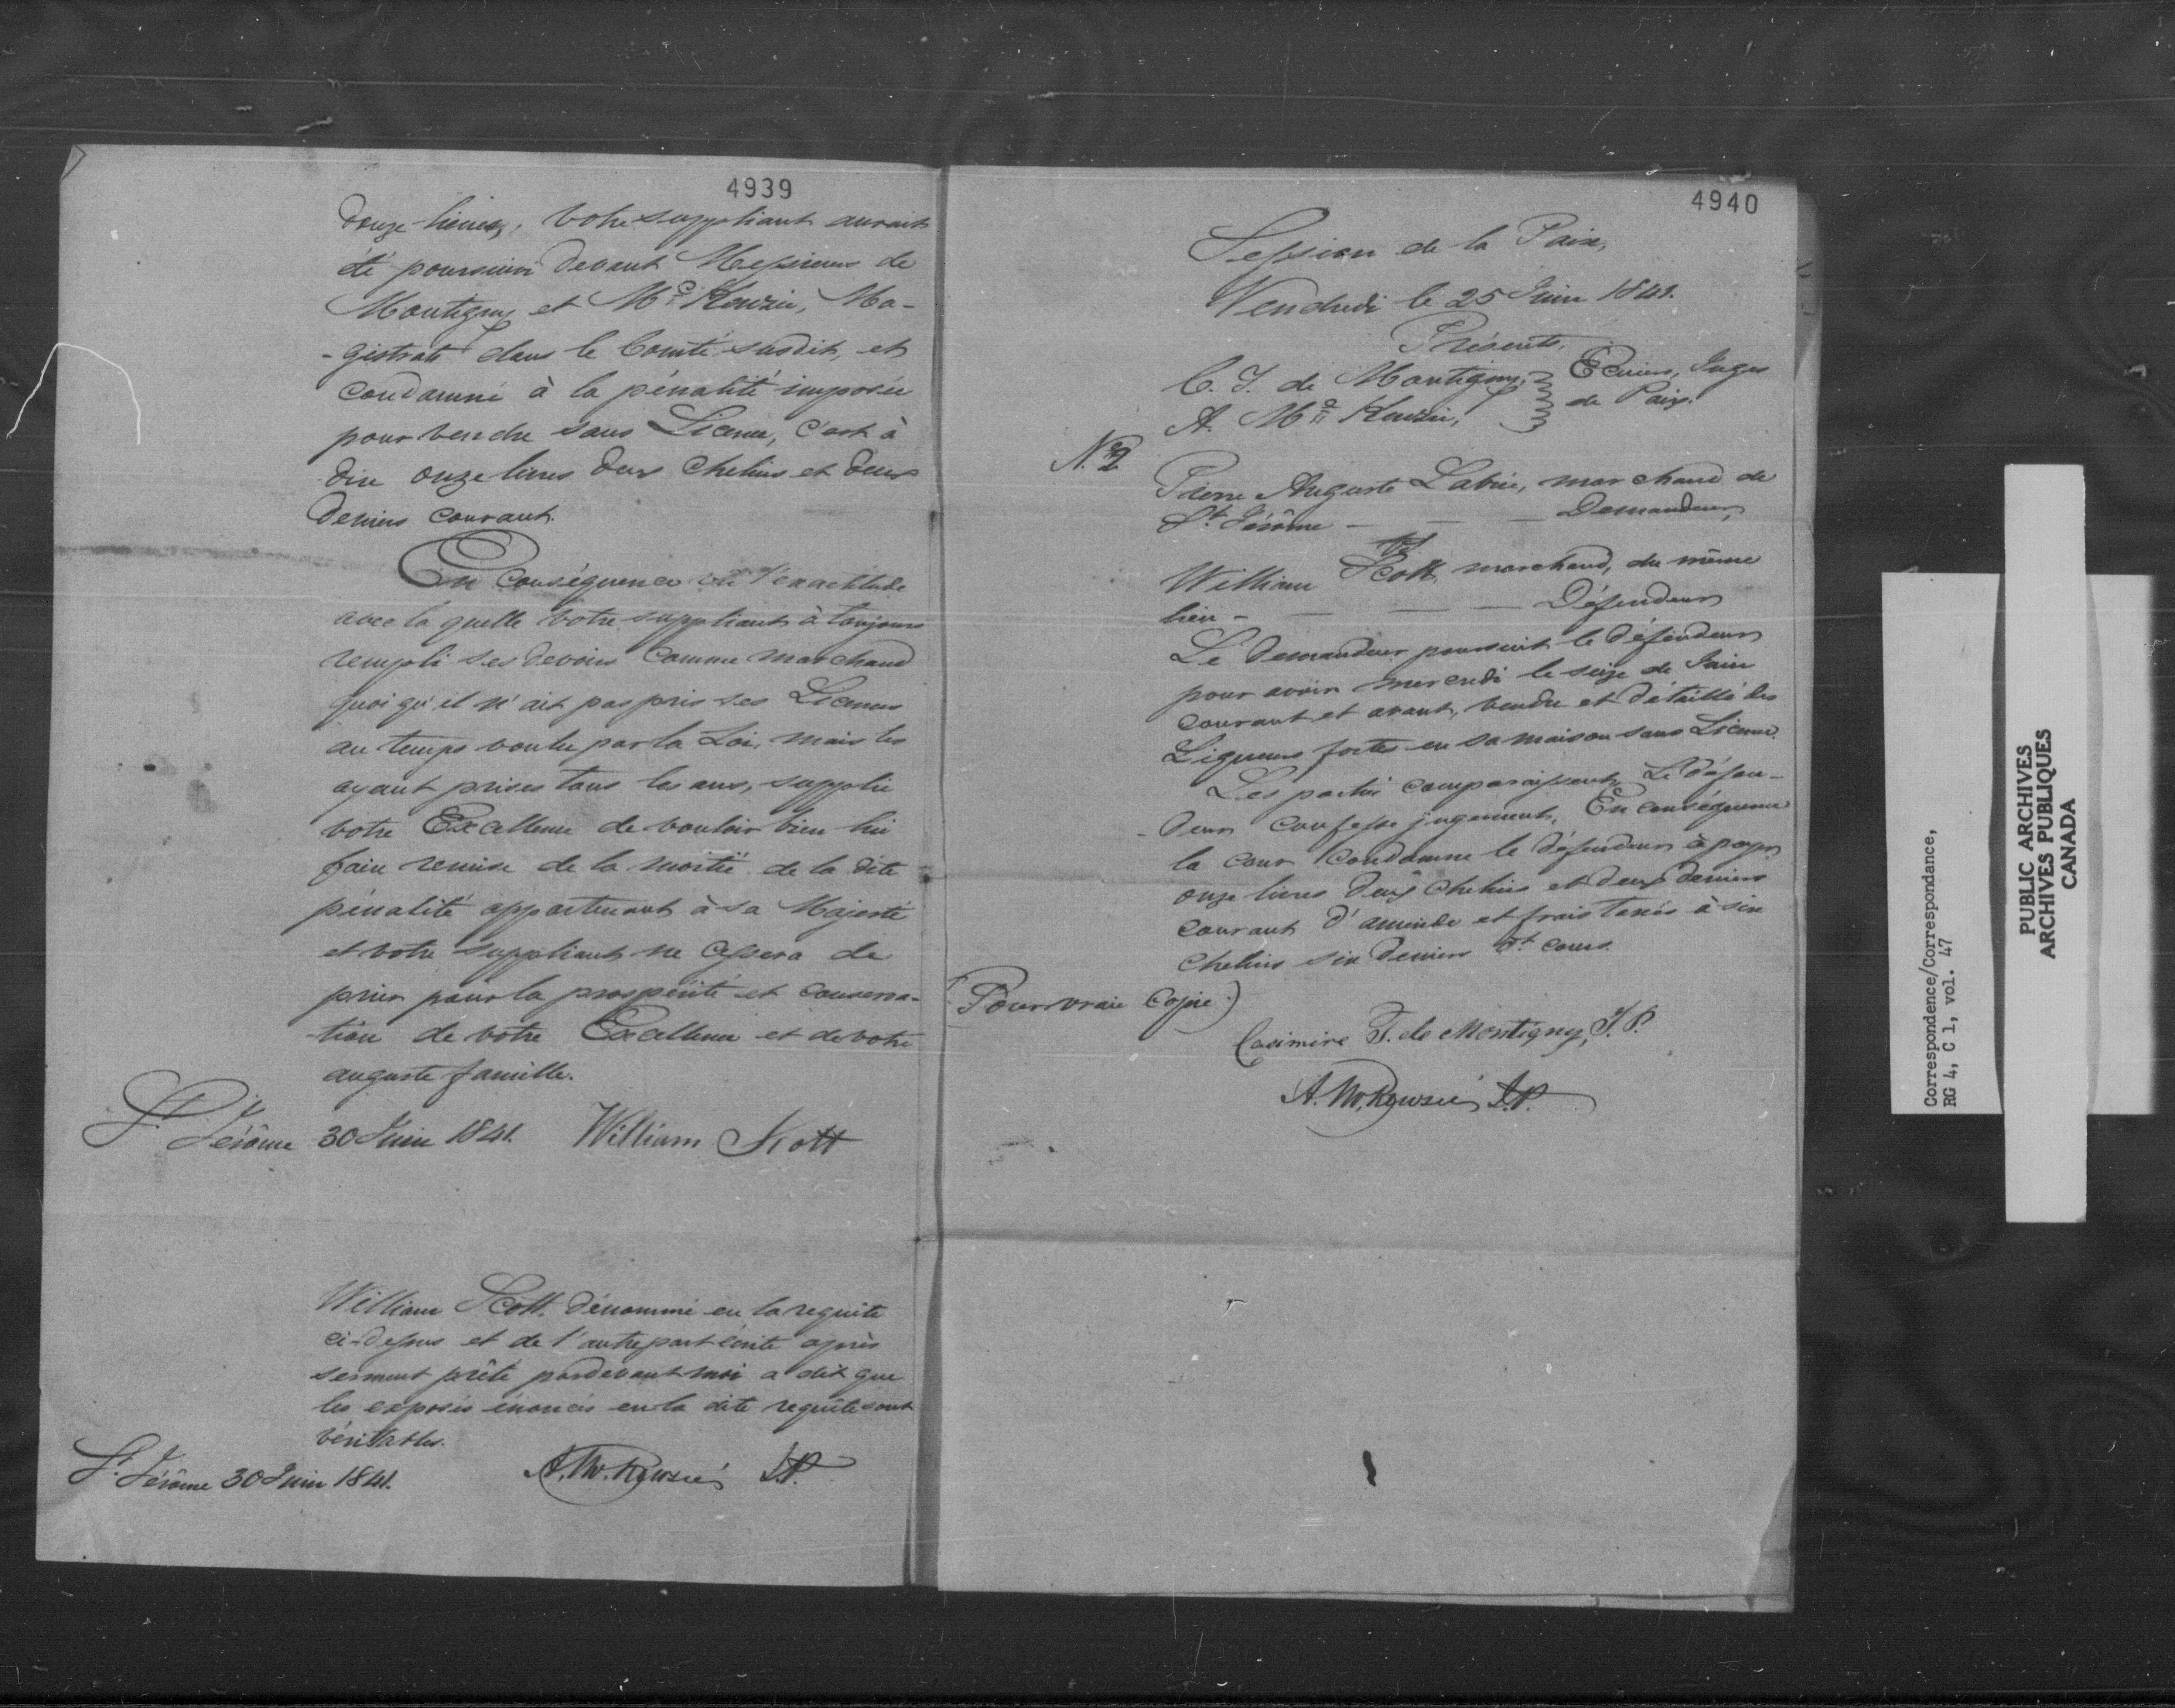 4939
douze lieues, votre suppliant aurait
été poursuivi devant Messieurs de
Montigny et Mc Kenzie, Ma-
-gistrats dans le Comté susdit, et
condamné à la pénalité imposée
pour vendre sans Licence, c'est à
dire onze livres deux chelins et deux
deniers courant.
En conséquence vu l'exactitude
avec la quelle votre suppliant à toujours
rempli ses devoirs comme marchand
quoiqu'il n'ait pas pris ses Licences
au temps voulu par la Loi, mais les
ayant prises tous les ans, supplie
votre Excellence de vouloir bien lui
faire remise de la moitié de la dite
pénalité appartenant à sa Majesté
et votre suppliant ne cessera de
prier pour la prospérité et conserva-
-tion de votre Excellence et de votre
auguste famille.
St. Jérôme 30 Juin 1841. William Scott
William Scott dénommé en la requête
ci-dessus et de l'autre part écrite après
serment prêté pardevant moi a dit que
les exposés énoncés en la dite requête sont
véritables.
St. Jérôme 30 Juin 1841. A. McKenzie J.P.
4940
Session de la Paix,
Vendredi le 25 Juin 1841.
Présents,
C. T. de Montigny, Ecuiers, Juges
A. Mc Kenzie, de Paix.
No. 2
Pierre Auguste Labrie, marchand de
St. Jérôme — — — Demandeur,
vs
William Scott, marchand, du même
lieu — — — Défendeur
Le demandeur poursuit le défendeur
pour avoir mercredi le seize de Juin
courant et avant, vendu et détaillé des
Liqueurs fortes en sa maison sans Licence.
Les parties comparaissent, Le défen-
-deur confesse jugement, En conséquence
la cour condamne le défendeur à payer
onze livres deux chelins et deux deniers
courant d'amende et frais taxés à six
chelins six deniers dt. cours.
(Pour vraie Copie)
Casimire T. de Montigny, J.P.
A. McKenzie J.P.
Correspondence/Correspondance,
RG 4, C 1, vol. 47
PUBLIC ARCHIVES
ARCHIVES PUBLIQUES
CANADA